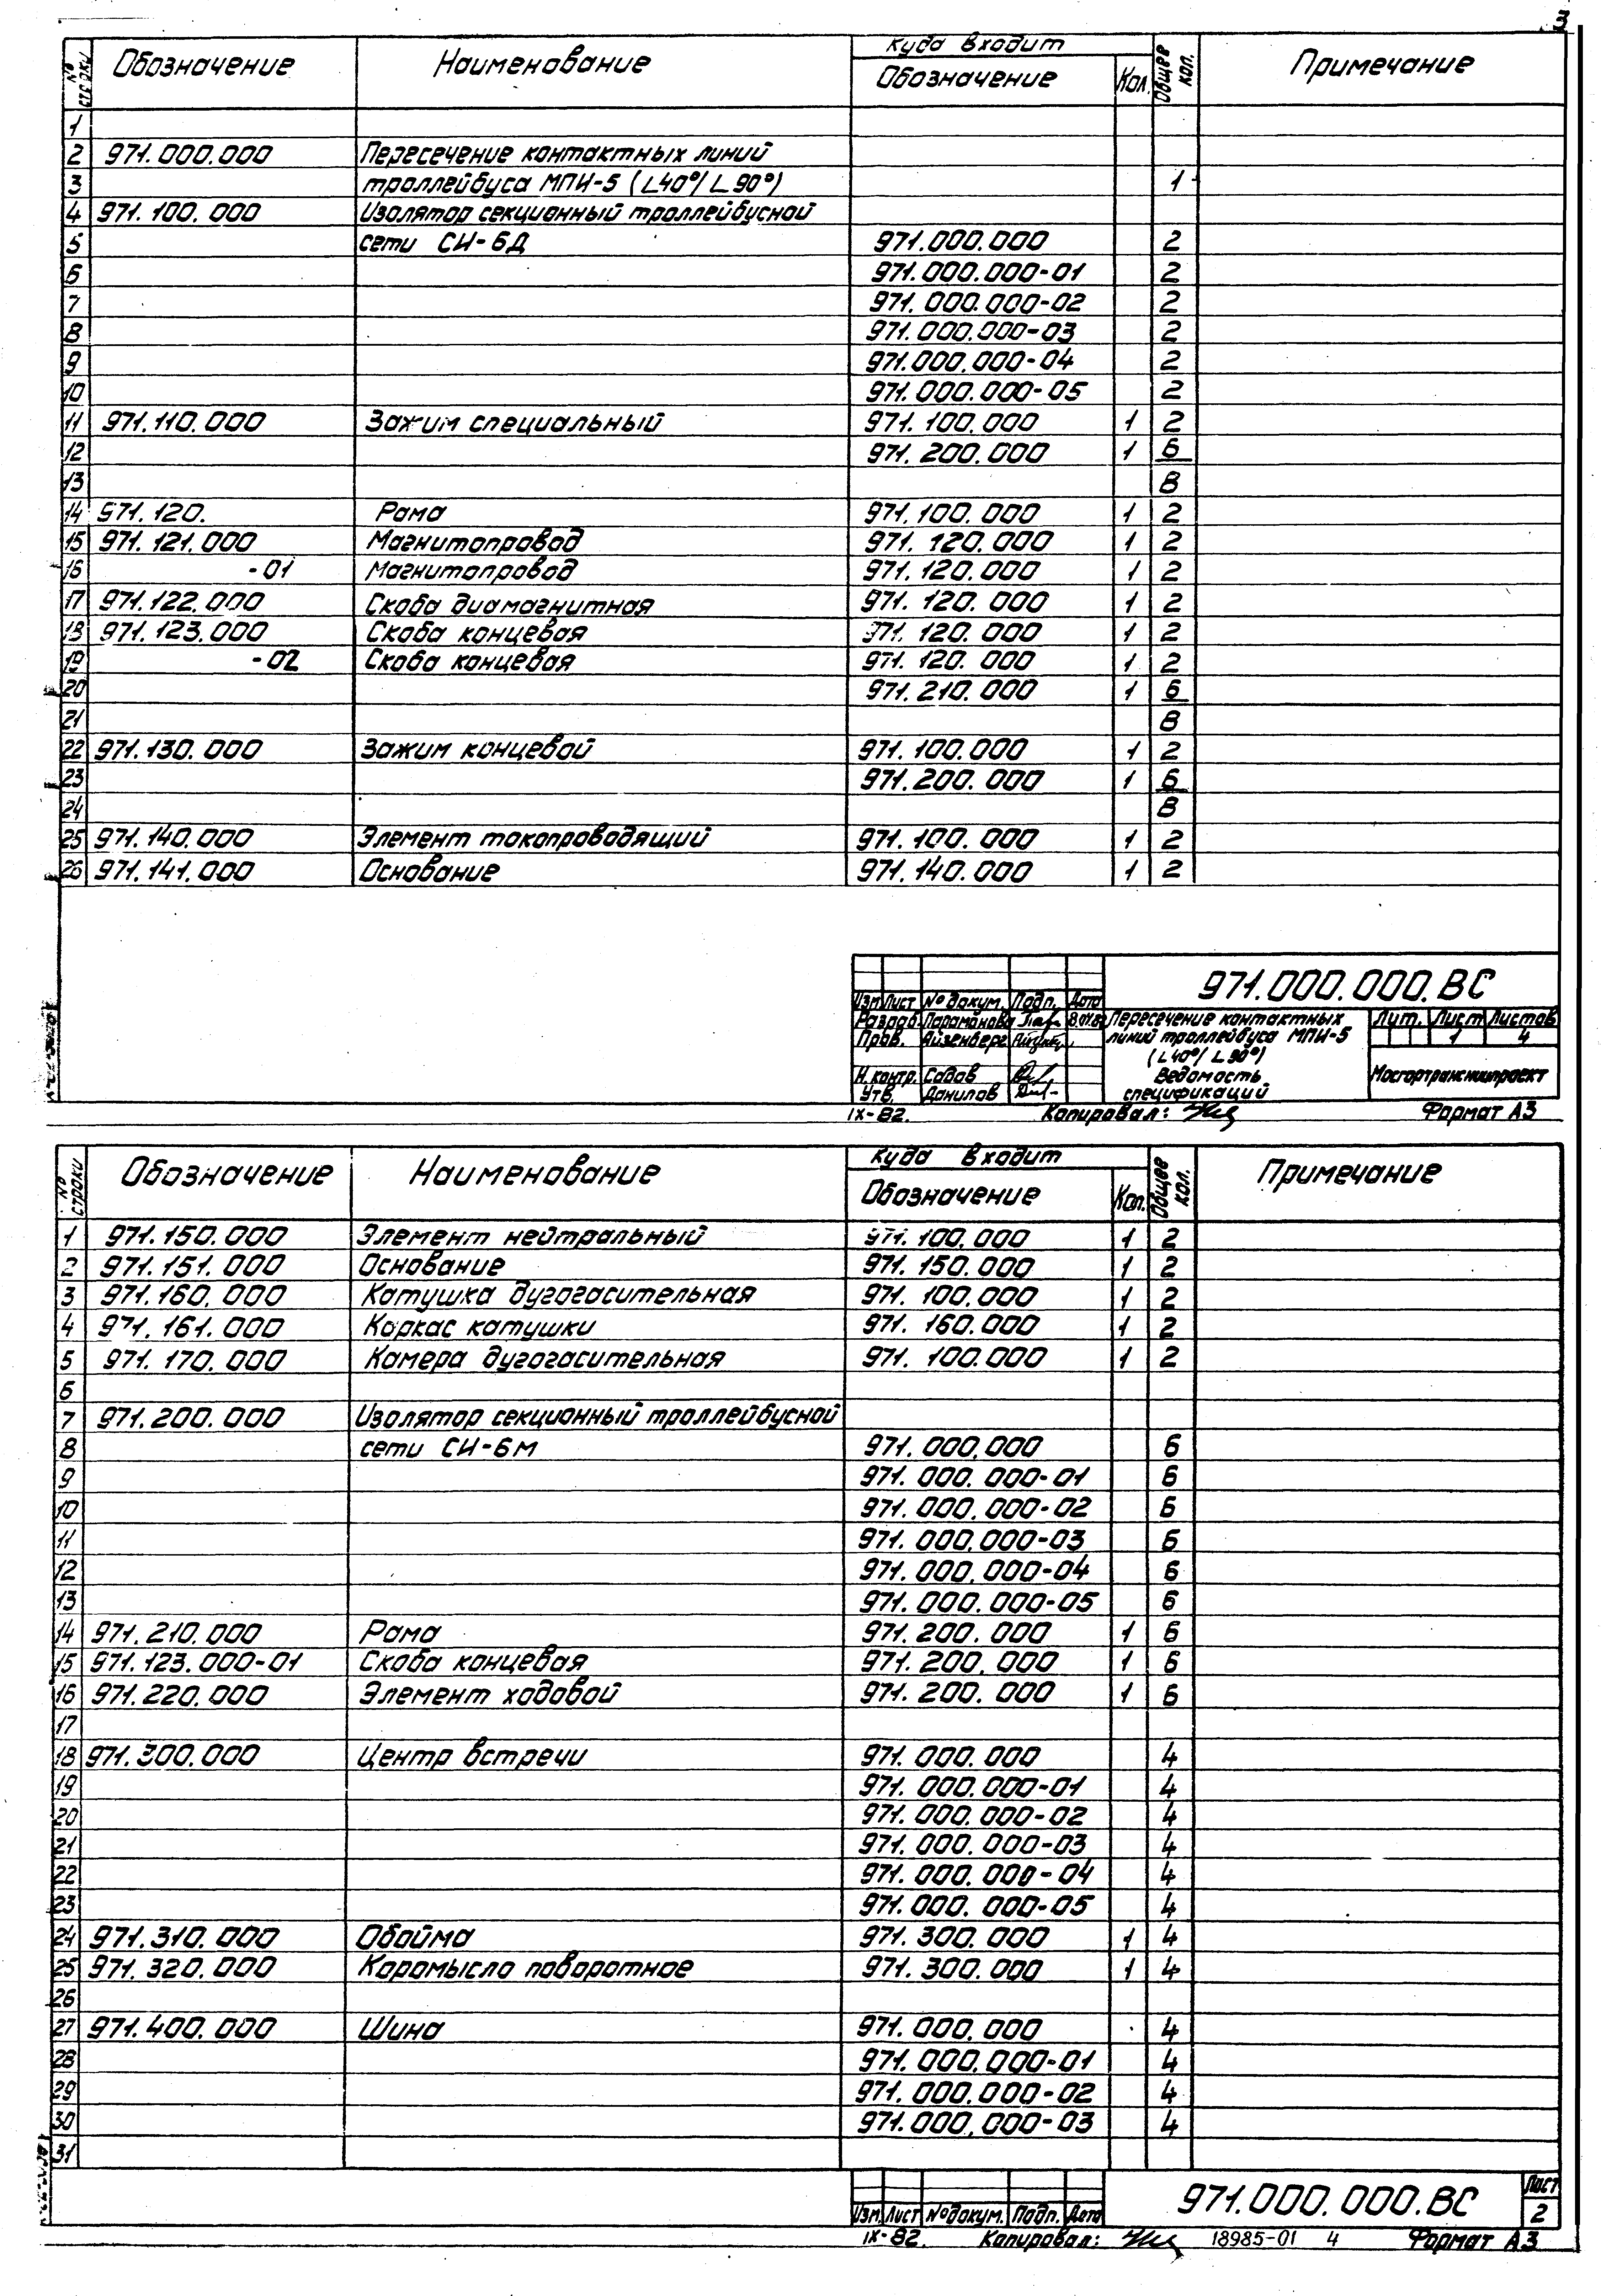 3
№ строки Обозначение Наименование Куда входит Общее кол. Примечание
Обозначение Кол.
1
2 971.000.000 Пересечение контактных линий
3 троллейбуса МПИ-5 (∠40°/∠90°) 1
4 971.100.000 Изолятор секционный троллейбусной
5 сети СИ-6Д 971.000.000 2
6 971.000.000-01 2
7 971.000.000-02 2
8 971.000.000-03 2
9 971.000.000-04 2
10 971.000.000-05 2
11 971.110.000 Зажим специальный 971.100.000 1 2
12 971.200.000 1 6
13 8
14 971.120. Рама 971.100.000 1 2
15 971.121.000 Магнитопровод 971.120.000 1 2
16 -01 Магнитопровод 971.120.000 1 2
17 971.122.000 Скоба диамагнитная 971.120.000 1 2
18 971.123.000 Скоба концевая 971.120.000 1 2
19 -02 Скоба концевая 971.120.000 1 2
20 971.210.000 1 6
21 8
22 971.130.000 Зажим концевой 971.100.000 1 2
23 971.200.000 1 6
24 8
25 971.140.000 Элемент токопроводящий 971.100.000 1 2
26 971.141.000 Основание 971.140.000 1 2
971.000.000.ВС
Изм Лист № докум. Подп. Дата
Разраб. Парамонова Пересечение контактных Лит. Лист Листов
Пров. Айзенберг линий троллейбуса МПИ-5 1 4
(∠40°/∠90°)
Н.контр. Садов Ведомость Мосгортрансниипроект
Утв. Данилов спецификаций
IX-82. Копировал: Формат А3
№ строки Обозначение Наименование Куда входит Общее кол. Примечание
Обозначение Кол.
1 971.150.000 Элемент нейтральный 971.100.000 1 2
2 971.151.000 Основание 971.150.000 1 2
3 971.160.000 Катушка дугогасительная 971.100.000 1 2
4 971.161.000 Каркас катушки 971.160.000 1 2
5 971.170.000 Камера дугогасительная 971.100.000 1 2
6
7 971.200.000 Изолятор секционный троллейбусной
8 сети СИ-6М 971.000.000 6
9 971.000.000-01 6
10 971.000.000-02 6
11 971.000.000-03 6
12 971.000.000-04 6
13 971.000.000-05 6
14 971.210.000 Рама 971.200.000 1 6
15 971.123.000-01 Скоба концевая 971.200.000 1 6
16 971.220.000 Элемент ходовой 971.200.000 1 6
17
18 971.300.000 Центр встречи 971.000.000 4
19 971.000.000-01 4
20 971.000.000-02 4
21 971.000.000-03 4
22 971.000.000-04 4
23 971.000.000-05 4
24 971.310.000 Обойма 971.300.000 1 4
25 971.320.000 Коромысло поворотное 971.300.000 1 4
26
27 971.400.000 Шина 971.000.000 4
28 971.000.000-01 4
29 971.000.000-02 4
30 971.000.000-03 4
31
971.000.000.ВС Лист
Изм. Лист № докум. Подп. Дата 2
IX-82. Копировал: 18985-01 4 Формат А3